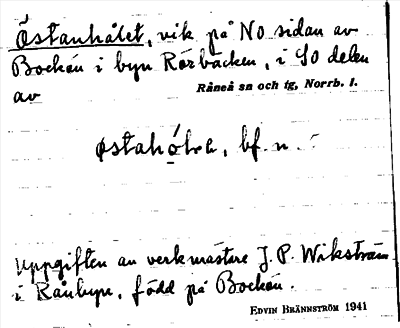 Östanhålet, vik på NO sidan av
Bockön i byn Rörbäcken, i SO delen
av
Råneå sn och tg, Norrb. l.
østahọ́lə, bf. n.
Uppgiften av verkmästare J. P. Wikström
i Rånbyn, född på Bockön.
EDVIN BRÄNNSTRÖM 1941